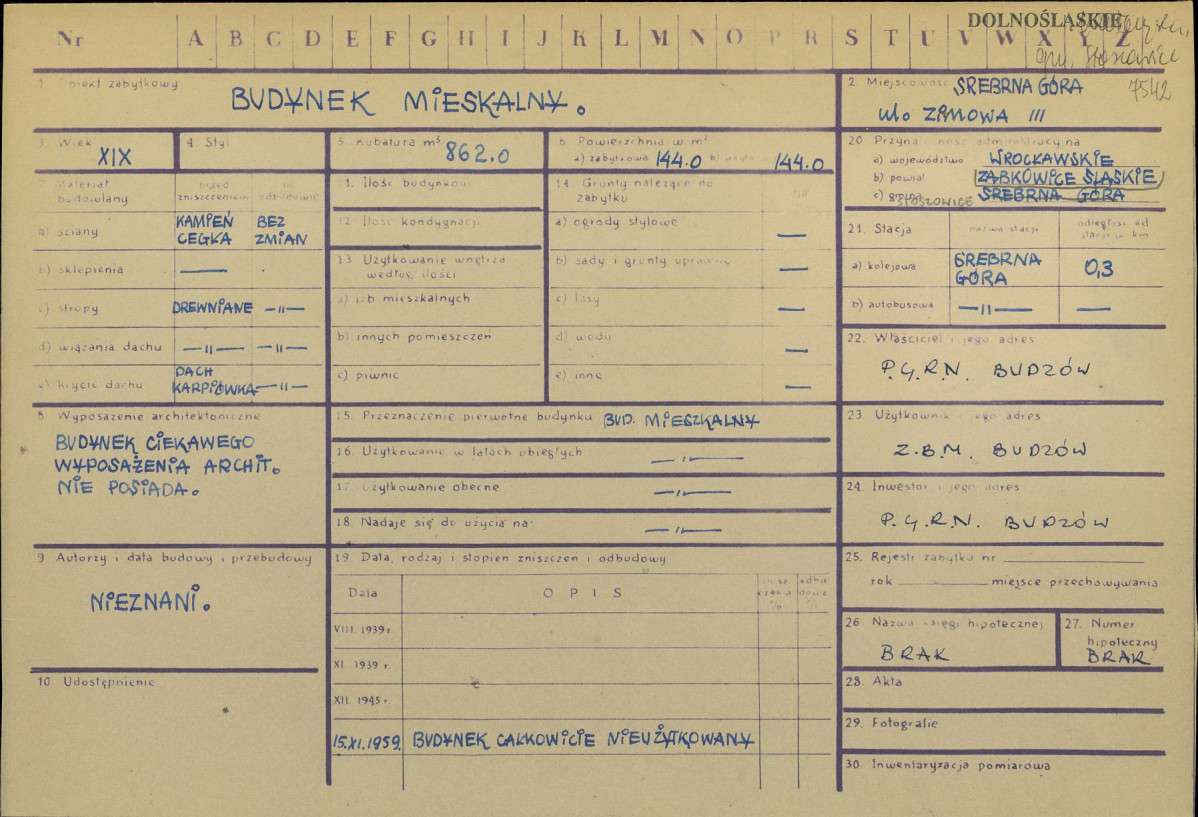 DOLNOŚLĄSKIE
Nr A B C D E F G H I J K L M N O P R S T U V W X Y Z
gm. Stoszowice
7542
1. Obiekt zabytkowy
BUDYNEK MIESKALNY.
2. Miejscowość SREBRNA GÓRA
ul. ZIMOWA III
3. Wiek
XIX
4. Styl
5. Kubatura m³
862.0
6. Powierzchnia w m²
a) zabytkowa 144.0 b) użytk. 144.0
20. Przynależność administracyjna
a) województwo WROCŁAWSKIE
b) powiat ZĄBKOWICE ŚLĄSKIE
c) gmina SREBRNA GÓRA
STOSZOWICE
7. Materiał budowlany
przed zniszczeniem
po odbudowie
a) ściany KAMIEŃ CEGŁA BEZ ZMIAN
b) sklepienia —
c) stropy DREWNIANE —"—
d) wiązania dachu —"— —"—
e) krycie dachu DACH KARPIÓWKA —"—
11. Ilość budynków
12. Ilość kondygnacji
13. Użytkowanie wnętrza według ilości
a) izb mieszkalnych
b) innych pomieszczeń
c) piwnic
14. Grunty należące do zabytku
ha
a) ogrody stylowe —
b) sady i grunty uprawne —
c) lasy —
d) wody —
e) inne —
21. Stacja
nazwa stacji
odległość od stacji w km
a) kolejowa SREBRNA GÓRA 0,3
b) autobusowa —"— —
22. Właściciel i jego adres
P.G.R.N. BUDZÓW
8. Wyposażenie architektoniczne
BUDYNEK CIEKAWEGO
WYPOSAŻENIA ARCHIT.
NIE POSIADA.
15. Przeznaczenie pierwotne budynku BUD. MIESZKALNY
16. Użytkowanie w latach ubiegłych —"—
17. Użytkowanie obecne —"—
18. Nadaje się do użycia na: —"—
23. Użytkownik i jego adres
Z.B.M. BUDZÓW
24. Inwestor i jego adres
P.G.R.N. BUDZÓW
9. Autorzy i data budowy i przebudowy
NIEZNANI.
10. Udostępnienie
19. Data, rodzaj i stopień zniszczeń i odbudowy
Data
OPIS
zniszczenia %
odbudowa %
VIII. 1939 r.
XI. 1939 r.
XII. 1945 r.
15.XI.1959. BUDYNEK CAŁKOWICIE NIEUŻYTKOWANY
25. Rejestr zabytku nr
rok miejsce przechowywania
26. Nazwa księgi hipotecznej
BRAK
27. Numer hipoteczny
BRAK
28. Akta
29. Fotografie
30. Inwentaryzacja pomiarowa